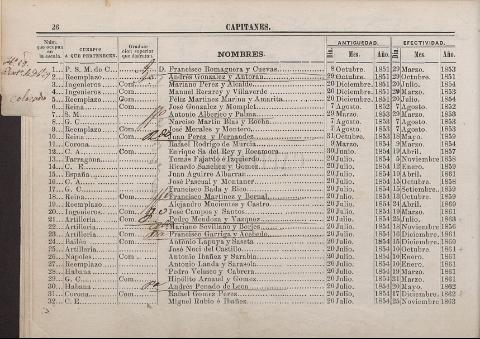 26 CAPITANES.
Núm. que ocupan en la escala. CUERPOS Á QUE PERTENECEN. Graduacion superior que disfrutan. NOMBRES. ANTIGUEDAD. EFECTIVIDAD.
Dia. Mes. Año. Dia. Mes. Año.
1.. P. S. M. do C... D. Francisco Romaguera y Cuevas. 8 Octubre. 1851 29 Marzo. 1853
2.. Reemplazo. Andrés Gonzalez y Autoran. 29 Octubre. 1851 29 Octubre. 1851
3.. Ingenieros Com. Mariano Perez y Alcalde. 20 Diciembre. 1851 20 Julio. 1854
4.. Ingenieros Com. Manuel Recarey y Villaverde 20 Diciembre. 1851 20 Julio. 1854
5.. Ingenieros Com. Feliz Martinez Marina y Amurita 20 Diciembre. 1851 20 Julio. 1854
6.. Reina. José Gonzalez y Momplet. 7 Agosto. 1852 7 Agosto. 1852
7.. S. M. Antonio Alberico y Palma. 29 Marzo. 1853 29 Marzo. 1853
8.. G. C. Narciso Martin Blas y Rocha. 7 Agosto. 1853 7 Agosto. 1853
9.. Reemplazo. José Morales y Montero. 7 Agosto. 1853 7 Agosto. 1853
10.. Reina. Com. Juan Perez y Fernandez. 31 Octubre. 1853 18 Mayo. 1859
11.. Corona. Rafael Rodrigo de Murcia. 9 Marzo. 1854 9 Marzo. 1854
12.. C. A. Com. Enrique Sa del Rey y Rocamora 20 Junio. 1854 19 Abril. 1857
13.. Tarragona. Tomás Fajardo é Izquierdo. 20 Julio. 1854 5 Noviembre 1858
14.. C. E. Ricardo Sanchez y Gomez. 20 Julio. 1854 13 Enero. 1861
15.. España. Juan Aguirre Albarraz 20 Julio. 1854 19 Abril. 1861
16.. C. A. José Pascual y Montaner. 20 Julio. 1854 15 Octubre. 1858
17.. G. C. Francisco Buda y Rico. 20 Julio. 1854 15 Setiembre. 1859
18.. Reina. Com. Francisco Martinez y Bernal. 20 Julio. 1854 13 Octubre. 1859
19.. Reemplazo. Alejandro Mocienos y Castro. 20 Julio. 1854 24 Abril. 1869
20.. Ingenieros Com. José Campos y Santos. 20 Julio. 1854 19 Marzo. 1861
21.. Artilleria Com. Pedro Mendoza y Vazquez. 20 Julio. 1854 25 Julio. 1863
22.. Artilleria. Mariano Sevillano y Borjes. 20 Julio. 1854 18 Noviembre 1856
23.. Artilleria Com. Francisco Garriga y Acebedo. 20 Julio. 1854 18 Octubre. 1861
24.. Bailén Com. Antonio Lapuya y Saseta 20 Julio. 1854 15 Diciembre. 1860
25.. Artilleria. José Noci del Castillo. 20 Julio. 1854 16 Octubre. 1861
26.. Nápoles Com. Antonio Ibañez y Sarabia. 20 Julio. 1854 10 Enero. 1861
27.. Reemplazo. Antonio Landa y Sarasola 20 Julio. 1854 10 Enero. 1861
28.. Habana. Pedro Velasco y Cabrera. 20 Julio. 1854 19 Marzo. 1861
29.. G. C. Com. Hipólito Arnaud y Gomez. 20 Julio. 1854 31 Marzo. 1861
30.. Habana. Andrés Penado de Leon 20 Julio. 1854 20 Mayo. 1862
31.. Corona. Com. Rafael Gomez Perez. 20 Julio. 1854 17 Diciembre. 1862
32.. C. E. Miguel Rubio é Ibañez. 20 Julio. 1854 25 Noviembre. 1863